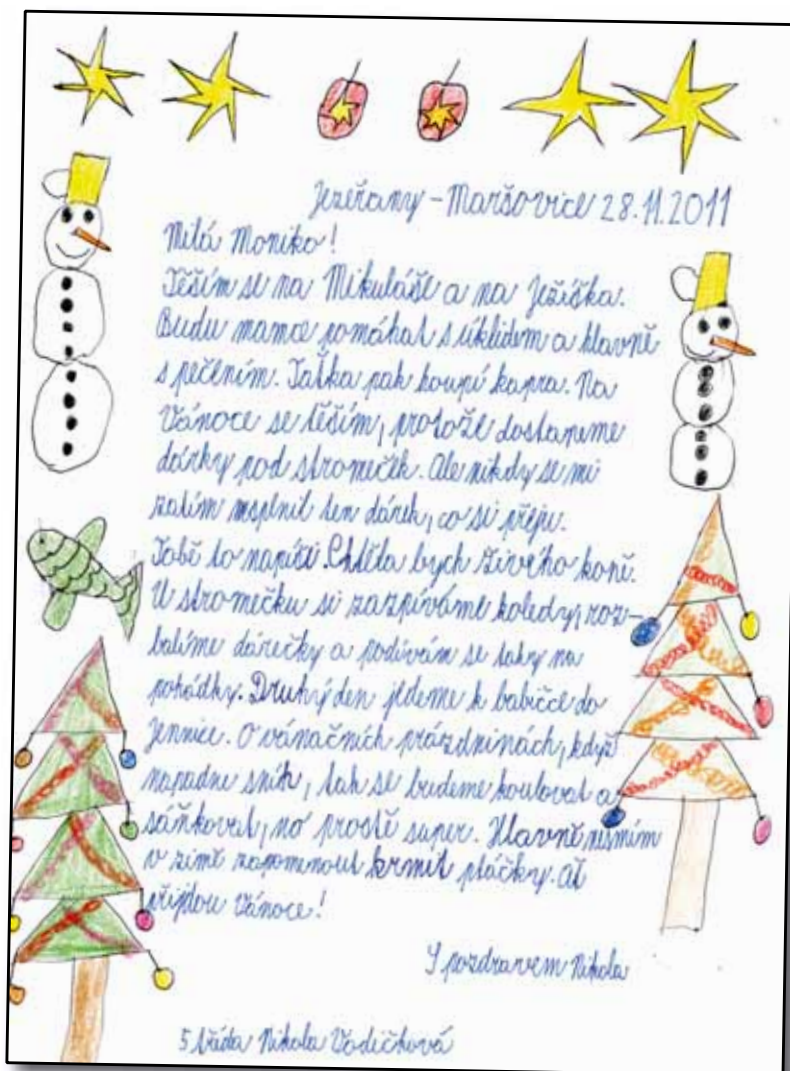 Jezeřany - Maršovice 28.11.2011
Milá Moniko!
Těším se na Mikuláše a na Ježíška.
Budu mamce pomáhat s úklidem a hlavně
s pečením. Taťka pak koupí kapra. Na
Vánoce se těším, protože dostaneme
dárky pod stromeček. Ale nikdy se mi
zatím nesplnil ten dárek, co si přeju.
Tobě to napíši. Chtěla bych živého koně.
U stromečku si zazpíváme koledy, roz-
balíme dárečky a podívám se taky na
pohádky. Druhý den jedeme k babičce do
O vánačních prázdninách, když
napadne sníh, tak se budeme koulovat a
sáňkovat, no prostě super. Hlavně nesmím
v zimě zapomnout krmit ptáčky. Ať
přijdou Vánoce!
S pozdravem Nikola
5 třída Nikola Vodičková